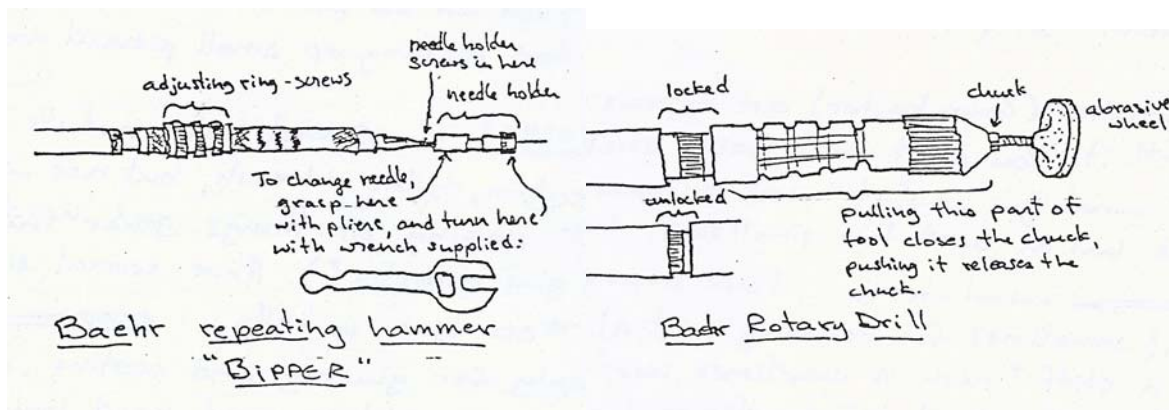 needle holder
screws in here
adjusting ring-screws
needle holder
To change needle,
grasp here
with pliers, and turn here
with wrench supplied:
Baehr repeating hammer
"BIPPER"
locked
chuck
abrasive
wheel
unlocked
pulling this part of
tool closes the chuck,
pushing it releases the
chuck.
Baehr Rotary Drill